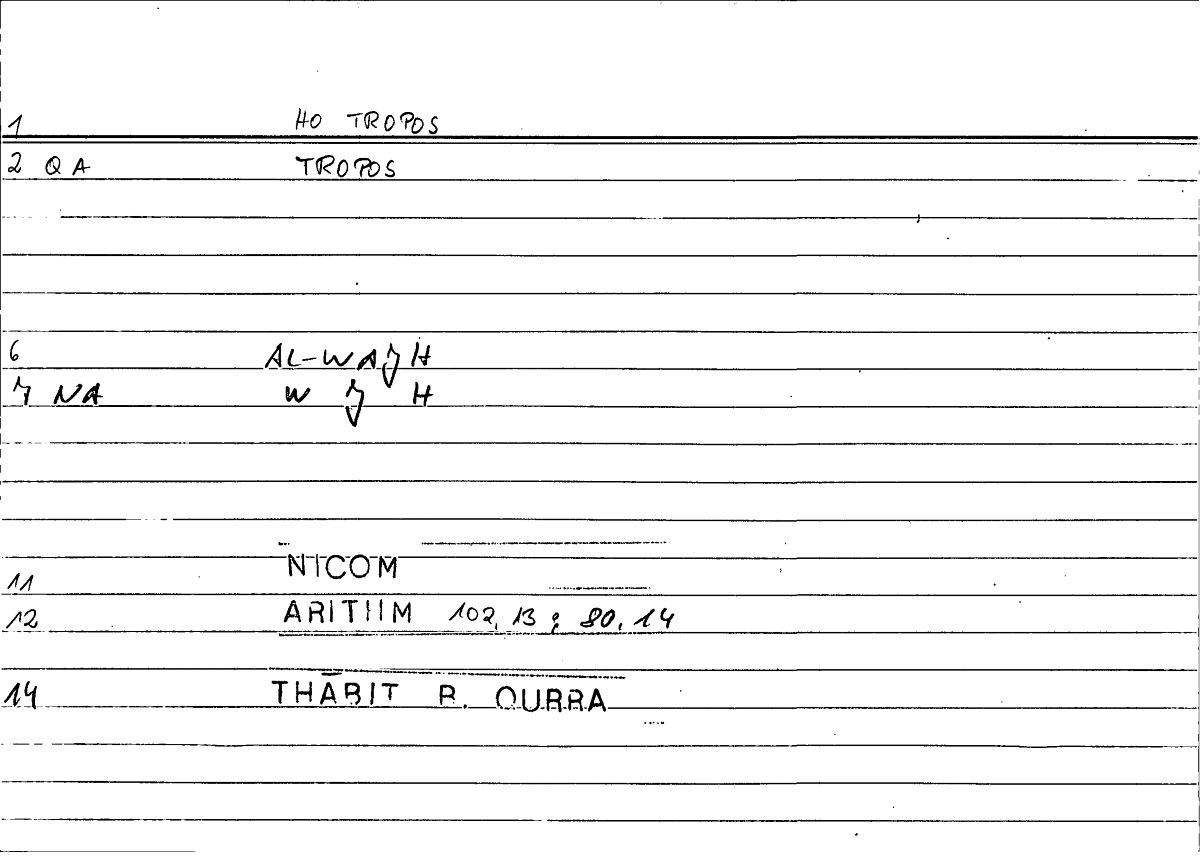 1 HO TROPOS
2 QA TROPOS
6 AL-WAJH
7 NA W J H
11 NICOM
12 ARITHM 102, 13; 80, 14
14 THĀBIT B. QURRA